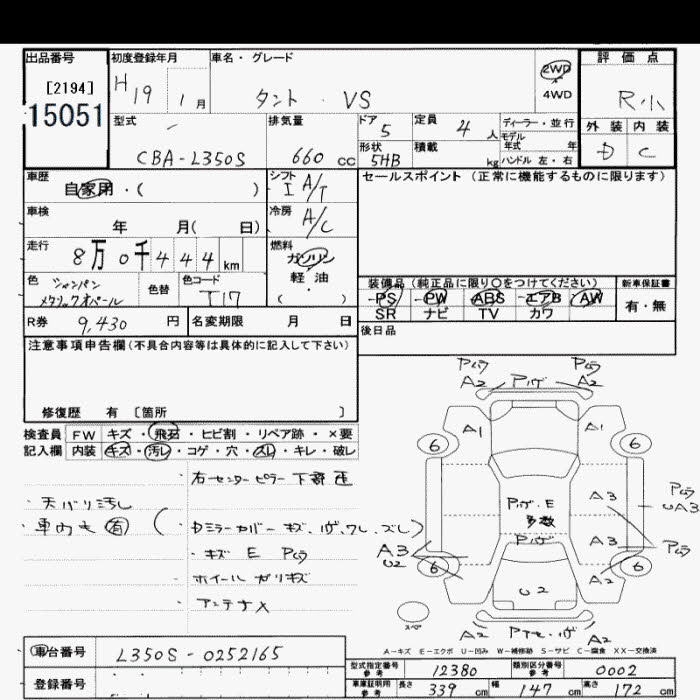 出品番号 初度登録年月 車名・グレード 2WD 評価点
[2194] H19 1月 タント VS 4WD R.小
15051 型式 排気量 ドア 定員 ディーラー・並行 外装 内装
CBA-L350S 660 cc 5 4人 モデル年式 年 D C
形状 5HB 積載 kg ハンドル 左・右
車歴 自家用・( ) シフト I A/T セールスポイント (正常に機能するものに限ります)
車検 年 月( 日) 冷房 A/C
走行 8万0千444km 燃料 ガソリン
軽油
( )
色 シャンパンメタリックオパール 色替 色コード T17
装備品 (純正品に限り○をつけてください) 新車保証書
PS PW ABS エアB AW 有・無
SR ナビ TV カワ
R券 9,430 円 名変期限 月 日 後日品
注意事項申告欄(不具合内容等は具体的に記入して下さい)
修復歴 有 [箇所 ]
検査員 FW キズ・飛石・ヒビ割・リペア跡・×要
記入欄 内装 キズ・汚レ・コゲ・穴・スレ・キレ・破レ
・右センターピラー下部
・天バリ汚レ
・車内モ 有 (
・キズ E
・ホイールガリキズ
・アンテナX
A2 A2
A1 A1
6 6
A3
UA3
A3
U2
A3
多数
6 6
A2
U2
スペ
A2 A2
A-キズ E-エクボ U-凹み W-補修跡 S-サビ C-腐食 XX-交換済
車台番号 L350S-0252165
登録番号
型式指定番号 参考 12380 類別区分番号 参考 0002
車庫証明用 参考 長さ 339 cm 幅 147 cm 高さ 172 cm